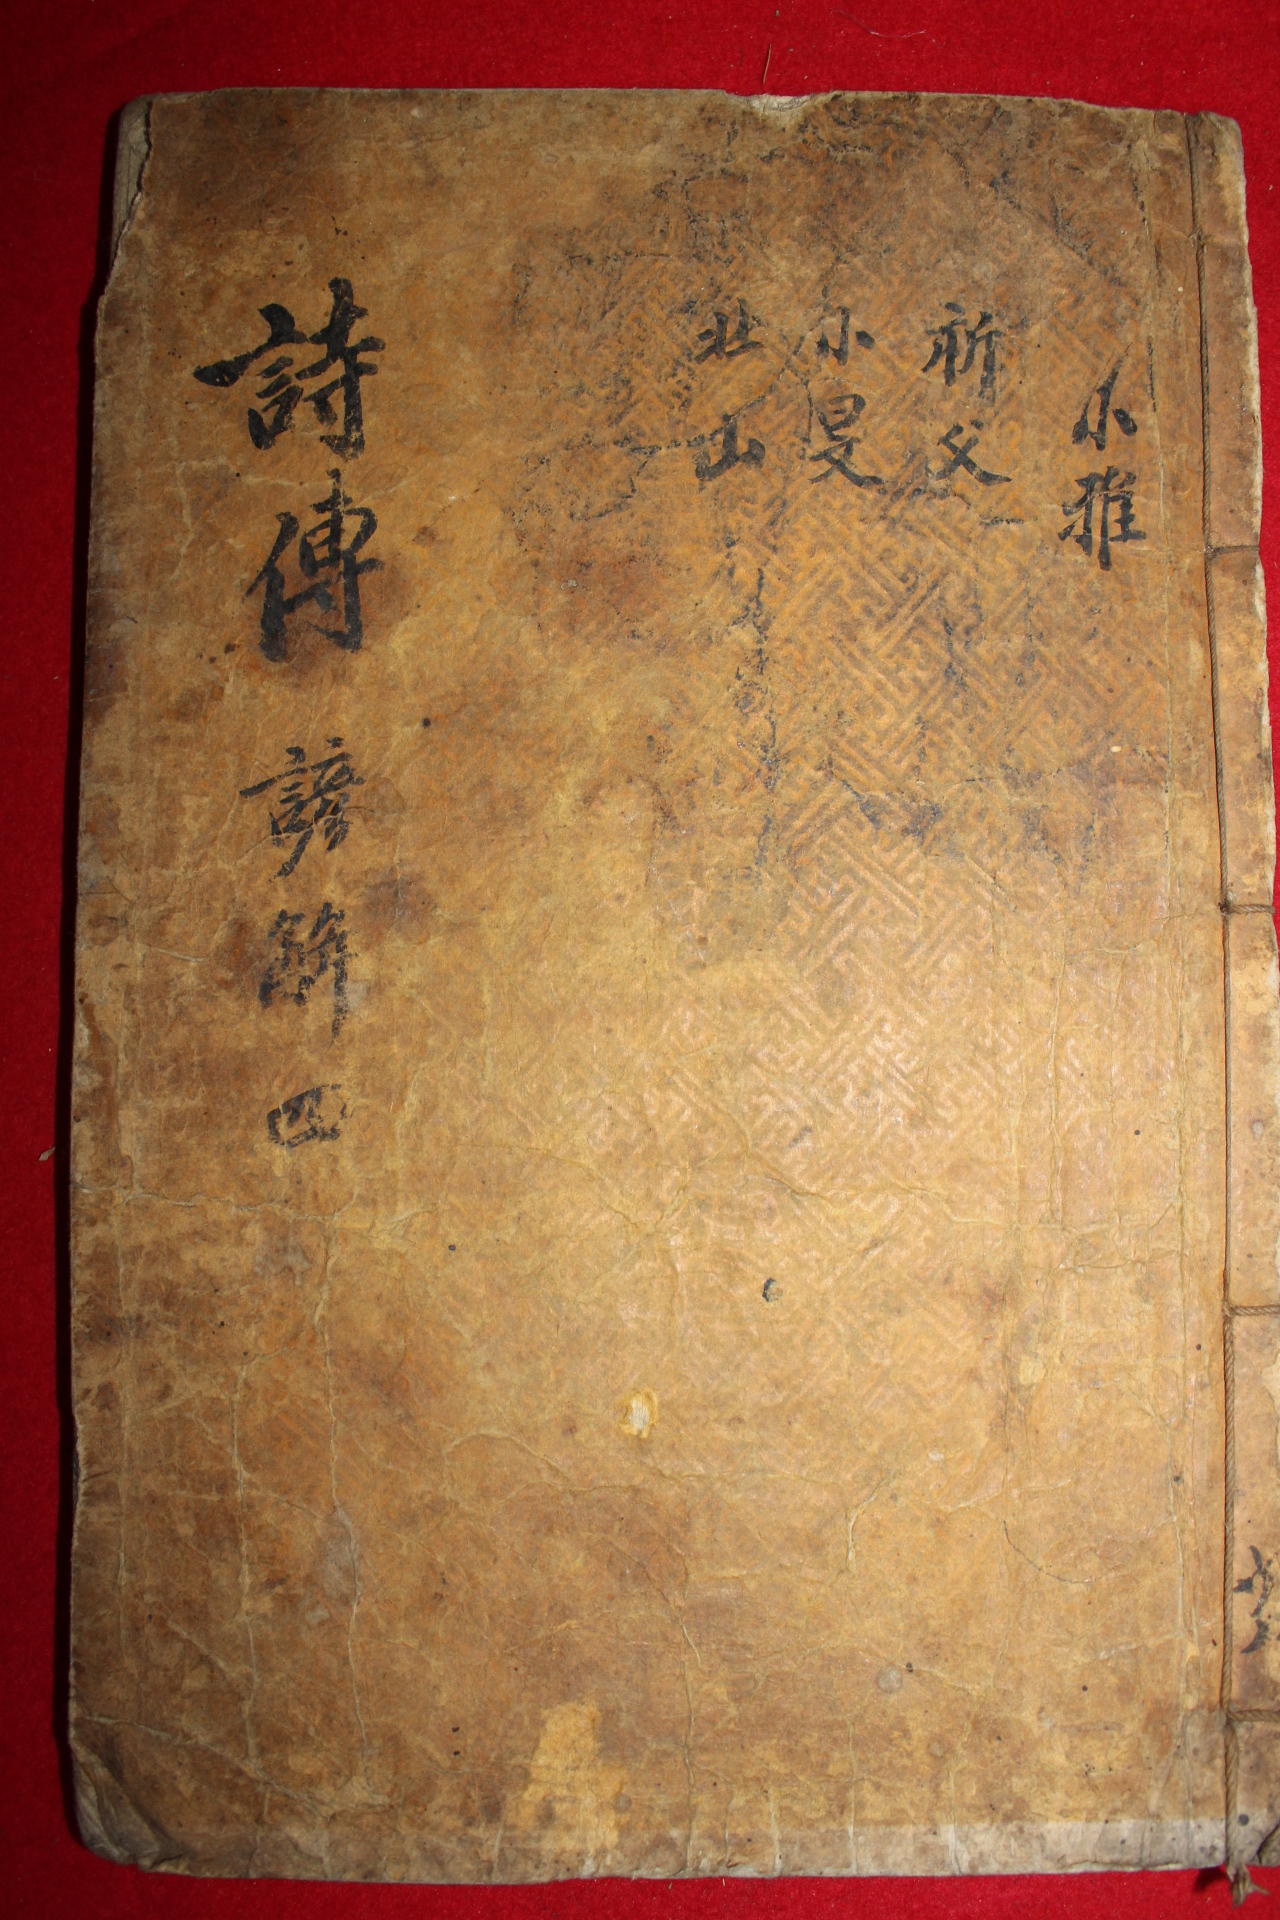 小雅
祈父
小旻
北山
詩傳 諺解 四